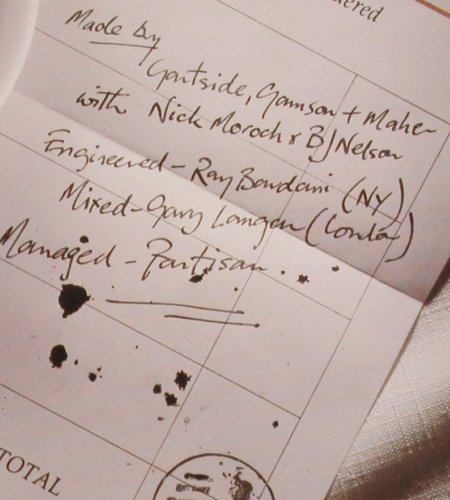 ered
Made by
Gartside, Gamson + Maher
with Nick Moroch & BJ Nelson
Engineered - Ray Bardani (NY)
Mixed - Gary Langan (London)
Managed - Partisan
TOTAL